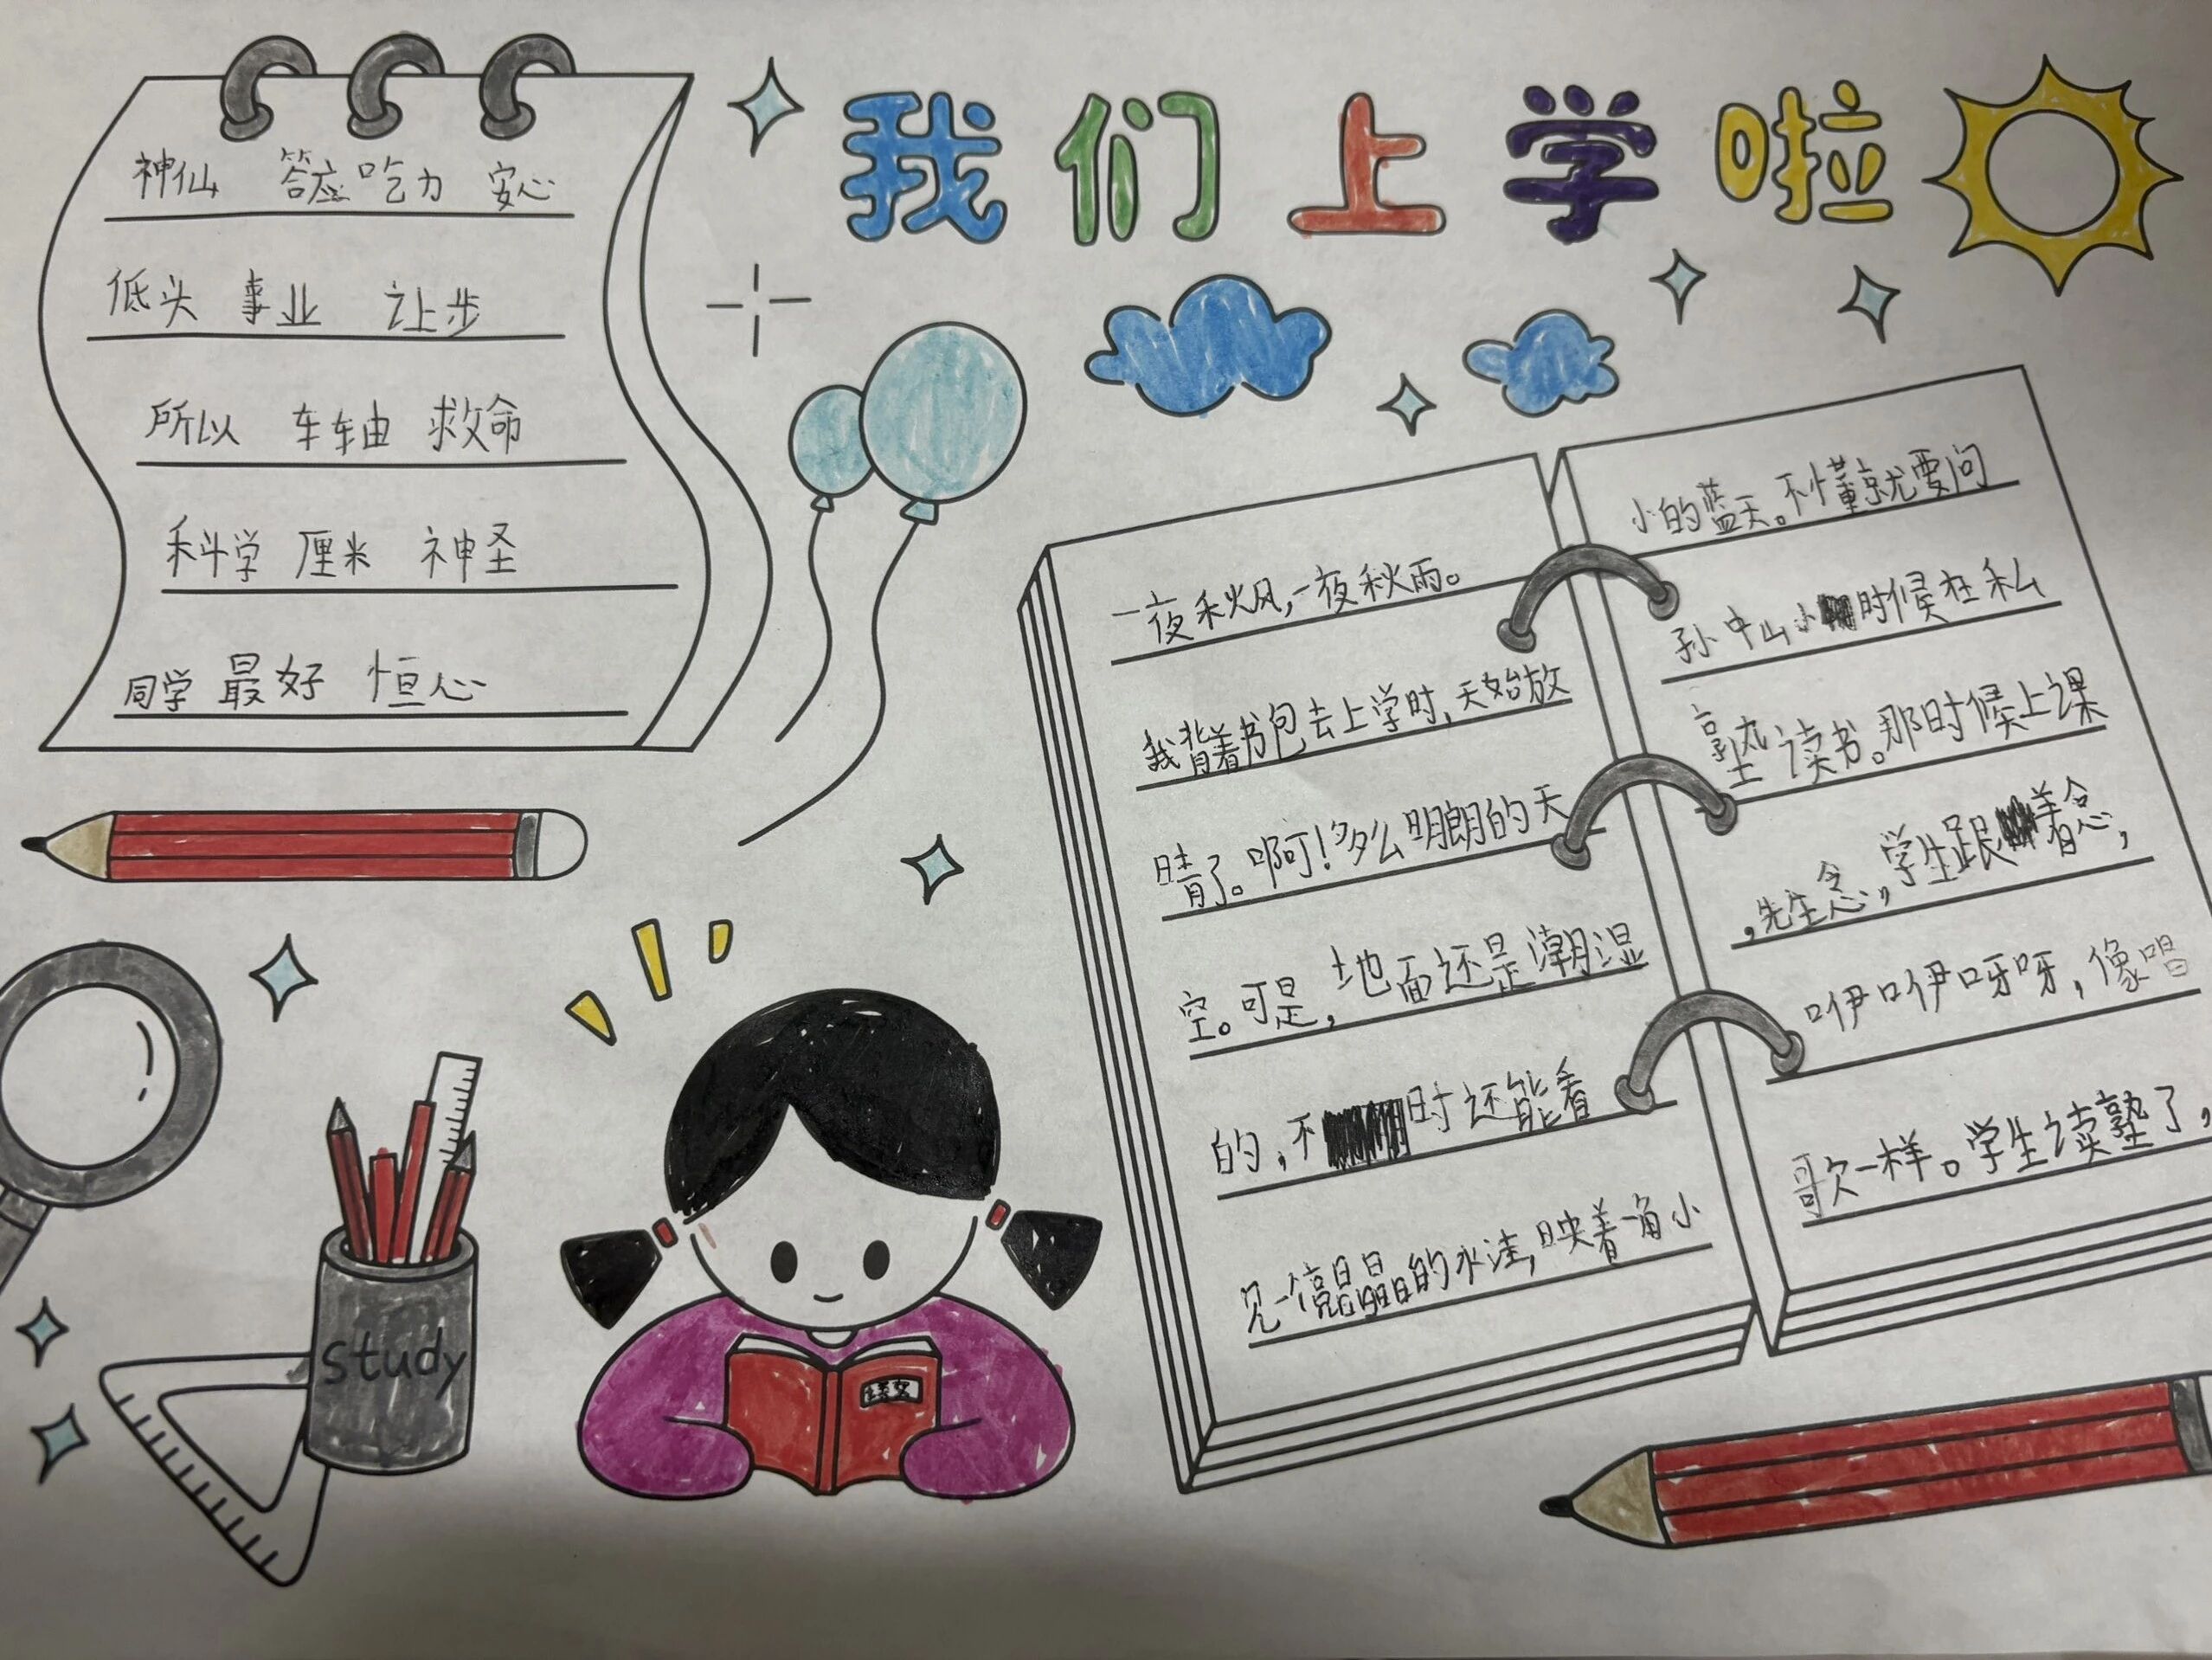 我们上学啦
神仙 答应 吃力 安心
低头 事业 让步
所以 车轴 救命
科学 厘米 神圣
同学 最好 恒心
一夜秋风,一夜秋雨。
我背着书包去上学时,天始放
晴了。啊!多么明朗的天
空。可是,地面还是潮湿
的,不时还能看
见一个亮晶晶的水洼,映着一角小
小的蓝天。不懂就要问
孙中山小时候在私
塾读书。那时候上课
,先生念,学生跟着念,
咿咿呀呀,像唱
歌一样。学生读熟了,
study
语文